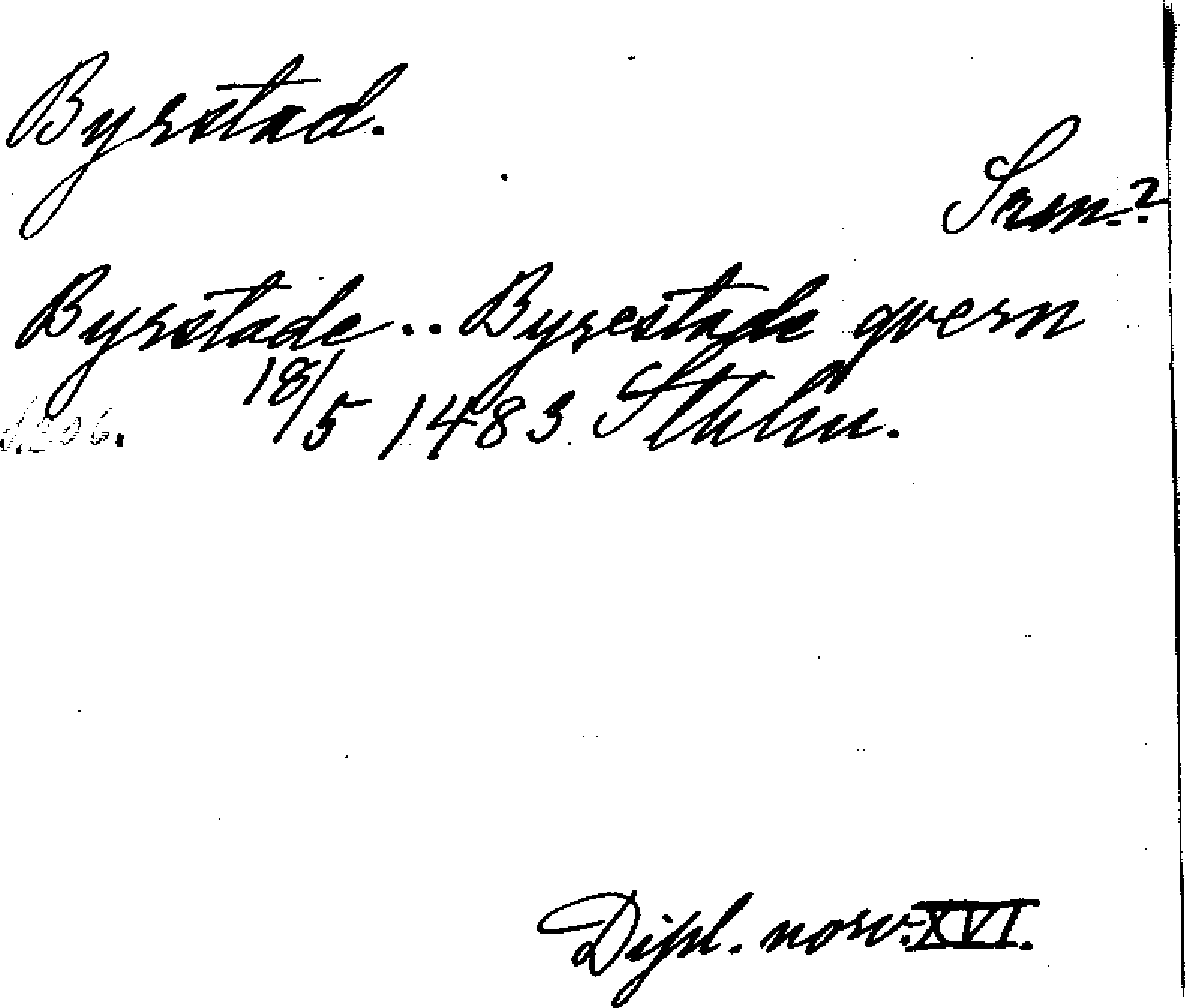 Byrstad.
Srm.?
Byrstade .. Byrestade qvern
18/5 1483 Sthlm.
s. 206.
Dipl. norv. XVI.